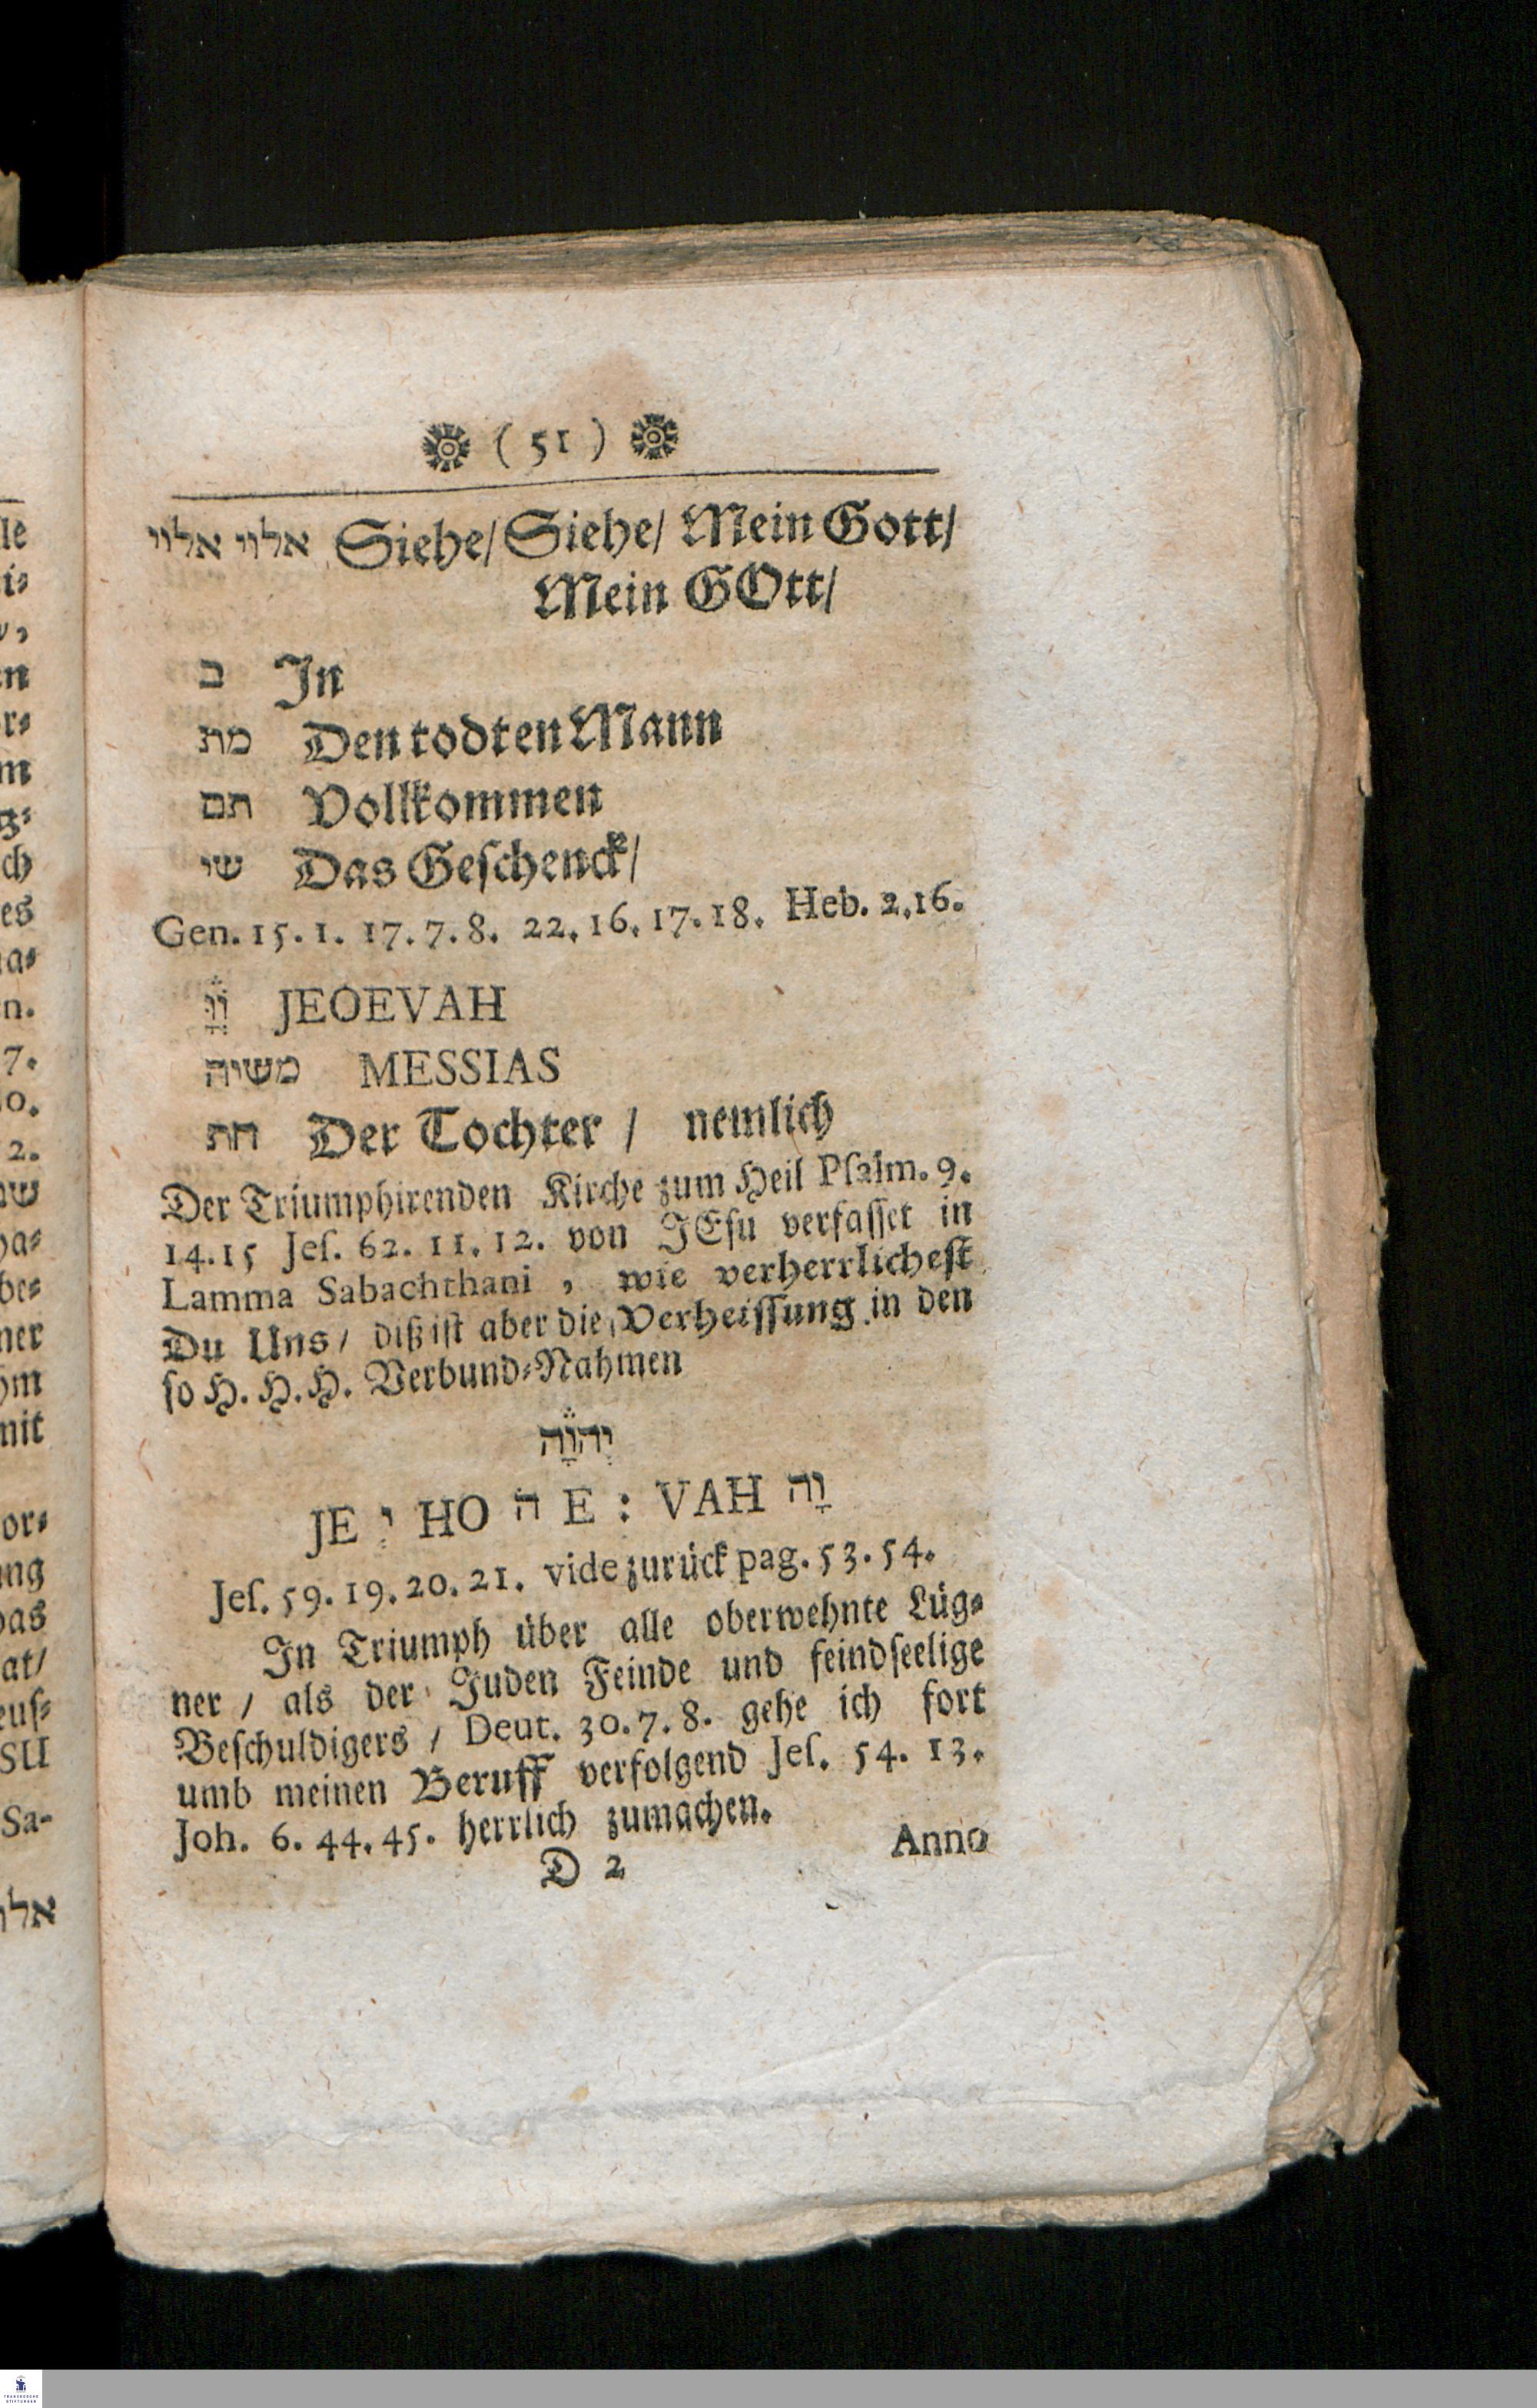 ( 51 )
אלוי אלוי Siehe/ Siehe/ Mein Gott/
Mein GOtt/
ב In
מת Den todten Mann
תם Vollkommen
שי Das Geſchenck/
Gen. 15. 1. 17. 7. 8. 22. 16. 17. 18. Heb. 2, 16.
JEOEVAH
משיה MESSIAS
חת Der Tochter / nemlich
Der Triumphirenden Kirche zum Heil Pſalm. 9.
14. 15 Jeſ. 62. 11. 12. von JEſu verfaſſet in
Lamma Sabachthani , wie verherrlicheſt
Du Uns / diß iſt aber die Verheiſſung in den
ſo H. H. H. Verbund⸗Nahmen
יְהוָֹה
JE יְ HO הֹ E : VAH וָה
Jeſ. 59. 19. 20. 21. vide zurück pag. 53. 54.
In Triumph über alle oberwehnte Lüg⸗
ner / als der Juden Feinde und feindſeelige
Beſchuldigers / Deut. 30. 7. 8. gehe ich fort
umb meinen Beruff verfolgend Jeſ. 54. 13.
Joh. 6. 44. 45. herrlich zumachen.
D 2 Anno